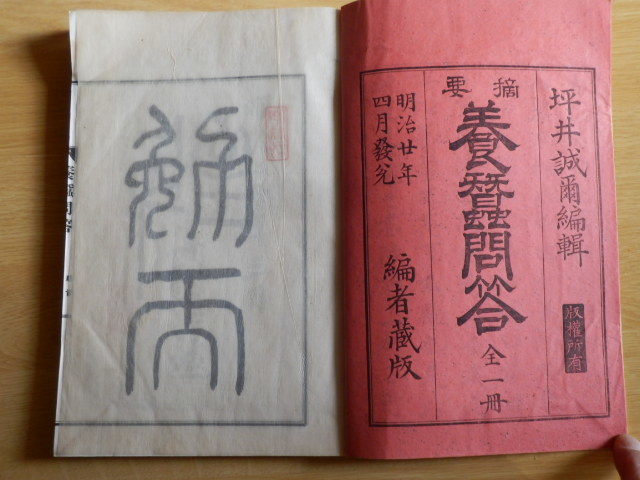 坪井誠爾編輯
版權所有
摘要
養蠶問答
全一冊
明治廿年
四月發兌
編者蔵版